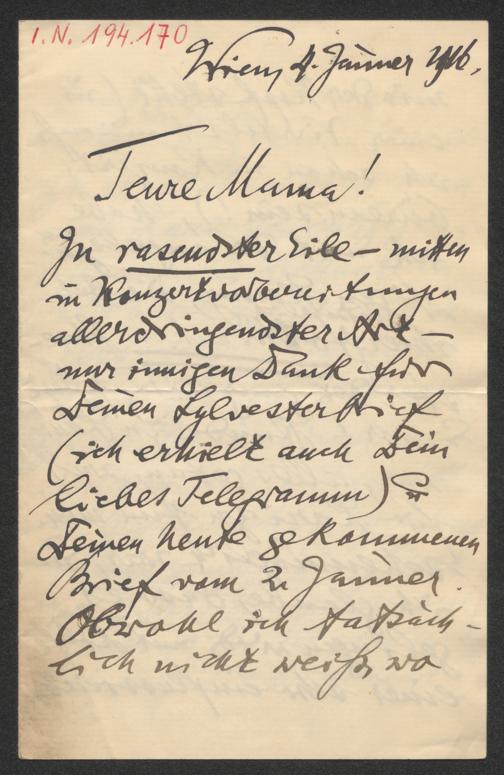 I. N. 194.170
Wien, 4. Jänner 1916.
Teure Mama!
In rasendster Eile – mitten
in Konzertvorbereitungen
allerdringendster Art –
nur innigen Dank für
Deinen Sylvesterbrief
(ich erhielt auch Dein
liebes Telegramm) &
Deinen heute gekommenen
Brief vom 2. Jänner.
Obwohl ich tatsäch-
lich nicht weiß, wo